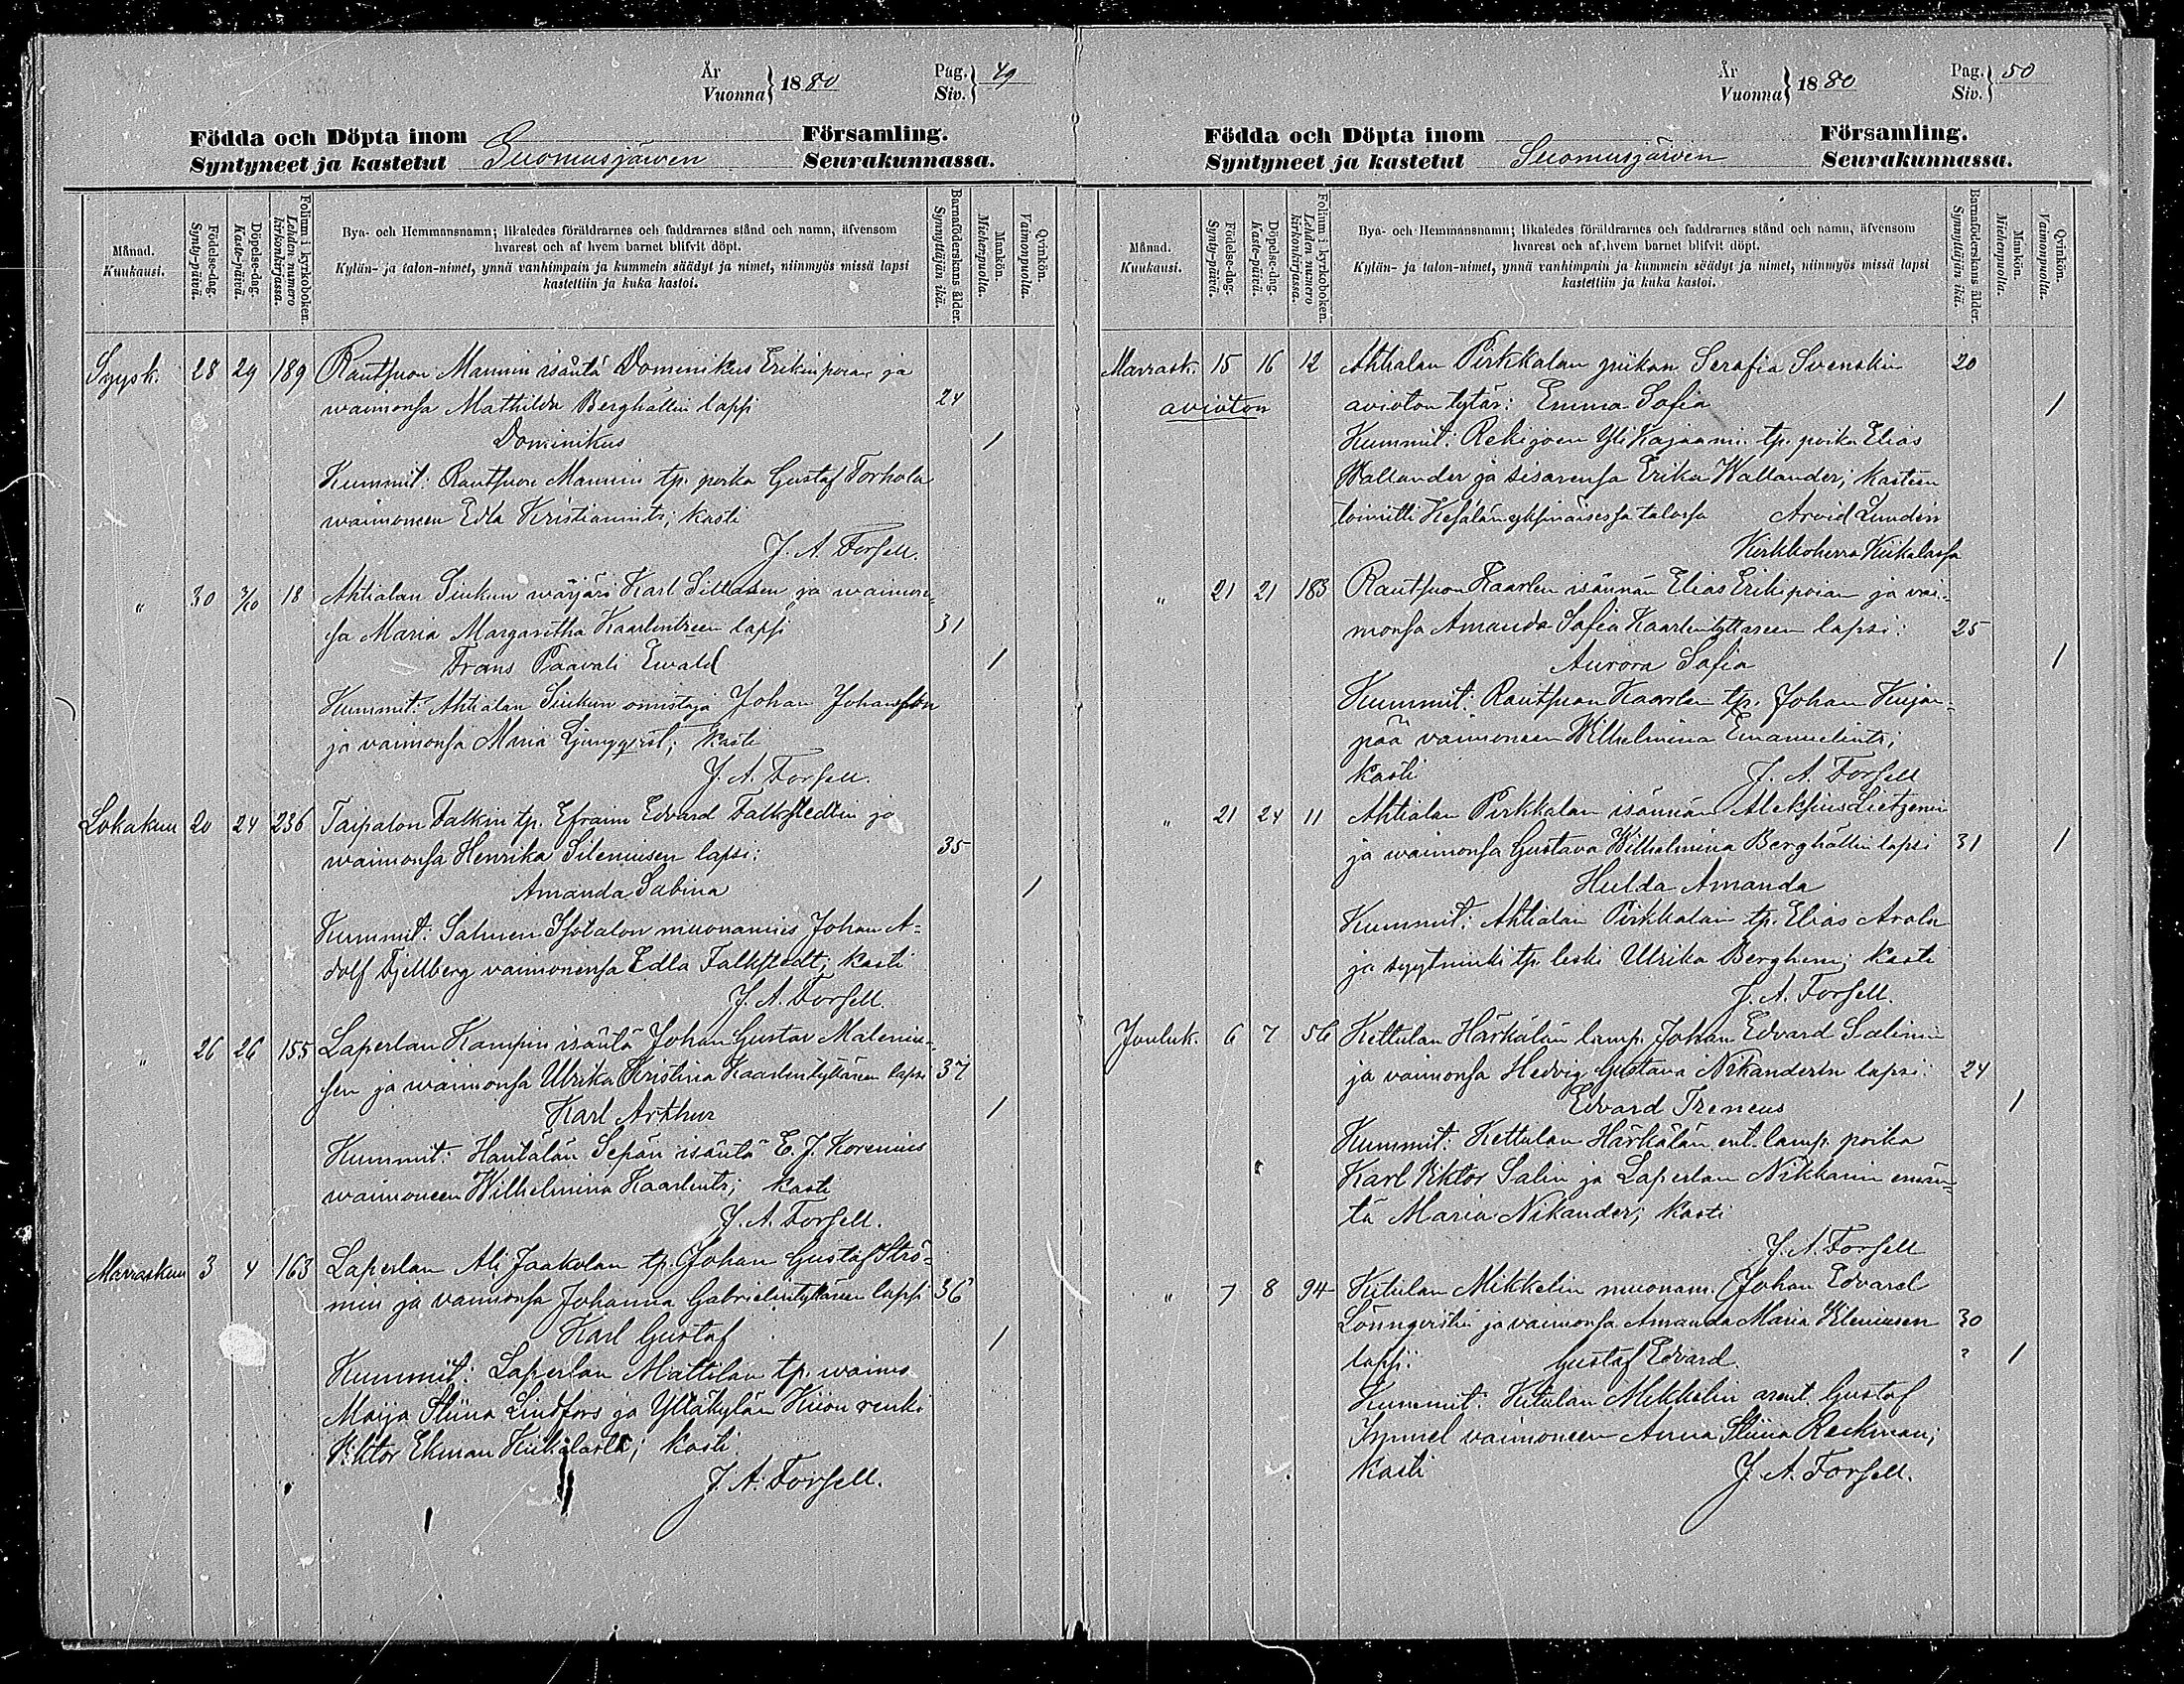 År Vuonna } 1880 Pag. Siv. } 49
Födda och Döpta inom Församling.
Syntyneet ja kastetut Suomusjärven Seurakunnassa.
Månad. Kuukausi.
Födelse-dag. Synty-päivä.
Döpelse-dag. Kaste-päivä.
Folium i kyrkoboken. Lehden numero kirkonkirjassa.
Bya- och Hemmansnamn; likaledes föräldrarnes och faddrarnes stånd och namn, äfvensom
hvarest och af hvem barnet blifvit döpt.
Kylän- ja talon-nimet, ynnä vanhimpain ja kummein säädyt ja nimet, niinmyös missä lapsi
kastettiin ja kuka kastoi.
Barnaföderskans ålder. Synnyttäjän ikä.
Mankön. Miehenpuolta.
Qvinkön. Vaimonpuolta.
Syysk. 28 29 189 Rautsuon Mannin isäntä Dominikus Erikinpoian ja
waimonsa Mathilda Berghällin lapsi 24
Dominikus 1
Kummit: Rautsuon Mannin tp. poika Gustaf Torhola
waimoneen Edla Kristiaanintr; kasti
J. A. Forsell.
" 30 3/10 18 Ahtialan Siukun wärjäri Karl Sillasen ja waimon-
sa Maria Margaretha Kaarlentreen lapsi 31
Frans Paavali Ewald 1
Kummit: Ahtialan Siukun omistaja Johan Johansson
ja vaimonsa Maria Ljungqvist; kasti
J. A. Forsell.
Lokakuu 20 24 236 Taipalon Falkin tp. Efraim Edvard Falkstedtin ja
waimonsa Henrika Sileniusen lapsi: 35
Amanda Sabina 1
Kummit: Salmen Isotalon muonamies Johan A-
dolf Fjellberg vaimonensa Edla Falkstedt; kasti
J. A. Forsell.
" 26 26 155 Laperlan Kampin isäntä Johan Gustav Maleniu-
sen ja waimonsa Ulrika Kristina Kaarlentyttären lapsi 37
Karl Arthur 1
Kummit: Hantälän Sepän isäntä E. J. Korenius
waimoneen Wilhelmina Kaarlentr; kasti
J. A. Forsell.
Marraskuu 3 4 163 Laperlan Ali Jaakolan tp. Johan Gustaf Strö-
min ja vaimonsa Johanna Gabrielintyttären lapsi 36
Karl Gustaf 1
Kummit: Laperlan Mattilan tp. waimo
Maija Stiina Lindfors ja Yltäkylän Kiion renki
Viktor Ekman Kiikalasta; kasti
J. A. Forsell.
År Vuonna } 1880 Pag. Siv. } 50
Födda och Döpta inom Församling.
Syntyneet ja kastetut Suomusjärven Seurakunnassa.
Månad. Kuukausi.
Födelse-dag. Synty-päivä.
Döpelse-dag. Kaste-päivä.
Folium i kyrkoboken. Lehden numero kirkonkirjassa.
Bya- och Hemmansnamn; likaledes föräldrarnes och faddrarnes stånd och namn, äfvensom
hvarest och af hvem barnet blifvit döpt.
Kylän- ja talon-nimet, ynnä vanhimpain ja kummein säädyt ja nimet, niinmyös missä lapsi
kastettiin ja kuka kastoi.
Barnaföderskans ålder. Synnyttäjän ikä.
Mankön. Miehenpuolta.
Qvinkön. Vaimonpuolta.
Marrask. 15 16 12 Ahtialan Pirkkalan piikan Serafia Svenskin 20
avioton avioton tytär: Emma Sofia 1
Kummit: Rekijoen Yli Kajaani tp. poika Elias
Wallander ja sisarensa Erika Wallander; kasteen
toimitti Kesälän yksinäisessä talossa Arvid Lundén
Kirkkoherra Kiikalassa
" 21 21 183 Rautsuon Kaarlen isännän Elias Erikinpoian ja vai-
monsa Amanda Sofia Kaarlentyttareen lapsi: 25
Aurora Sofia 1
Kummit: Rautsuon Kaarlen tp. Johan Kujan-
pää vaimoneen Wilhelmina Emanuelintr;
kasti J. A. Forsell
" 21 24 11 Ahtialan Pirkkalan isännän Aleksius Lietzenin
ja waimonsa Gustava Wilhelmina Berghällin lapsi 31 1
Hulda Amanda
Kummit: Ahtialan Pirkkalan tp. Elias Arola
ja syytinki tp. leski Ulrika Berghem; kasti
J. A. Forsell.
Jouluk. 6 7 56 Kettulan Härkälän lamp. Johan Edvard Salinin
ja vaimonsa Hedvig Gustava Nikanderin lapsi: 24
Edvard Ireneus 1
Kummit: Kettulan Härkälän ent. lamp. poika
Karl Viktor Salin ja Laperlan Nikkarin emän-
tä Maria Nikander; kasti
J. A. Forsell
" 7 8 94 Kitulan Mikkelin muonam. Johan Edvard
Lönnqvistin ja vaimonsa Amanda Maria Kileniusen 30
lapsi: Gustaf Edvard. ? 1
Kummit: Kitulan Mikkelin arent. Gustaf
Immel vaimoneen Anna Stiina Reckman;
kasti J. A. Forsell.